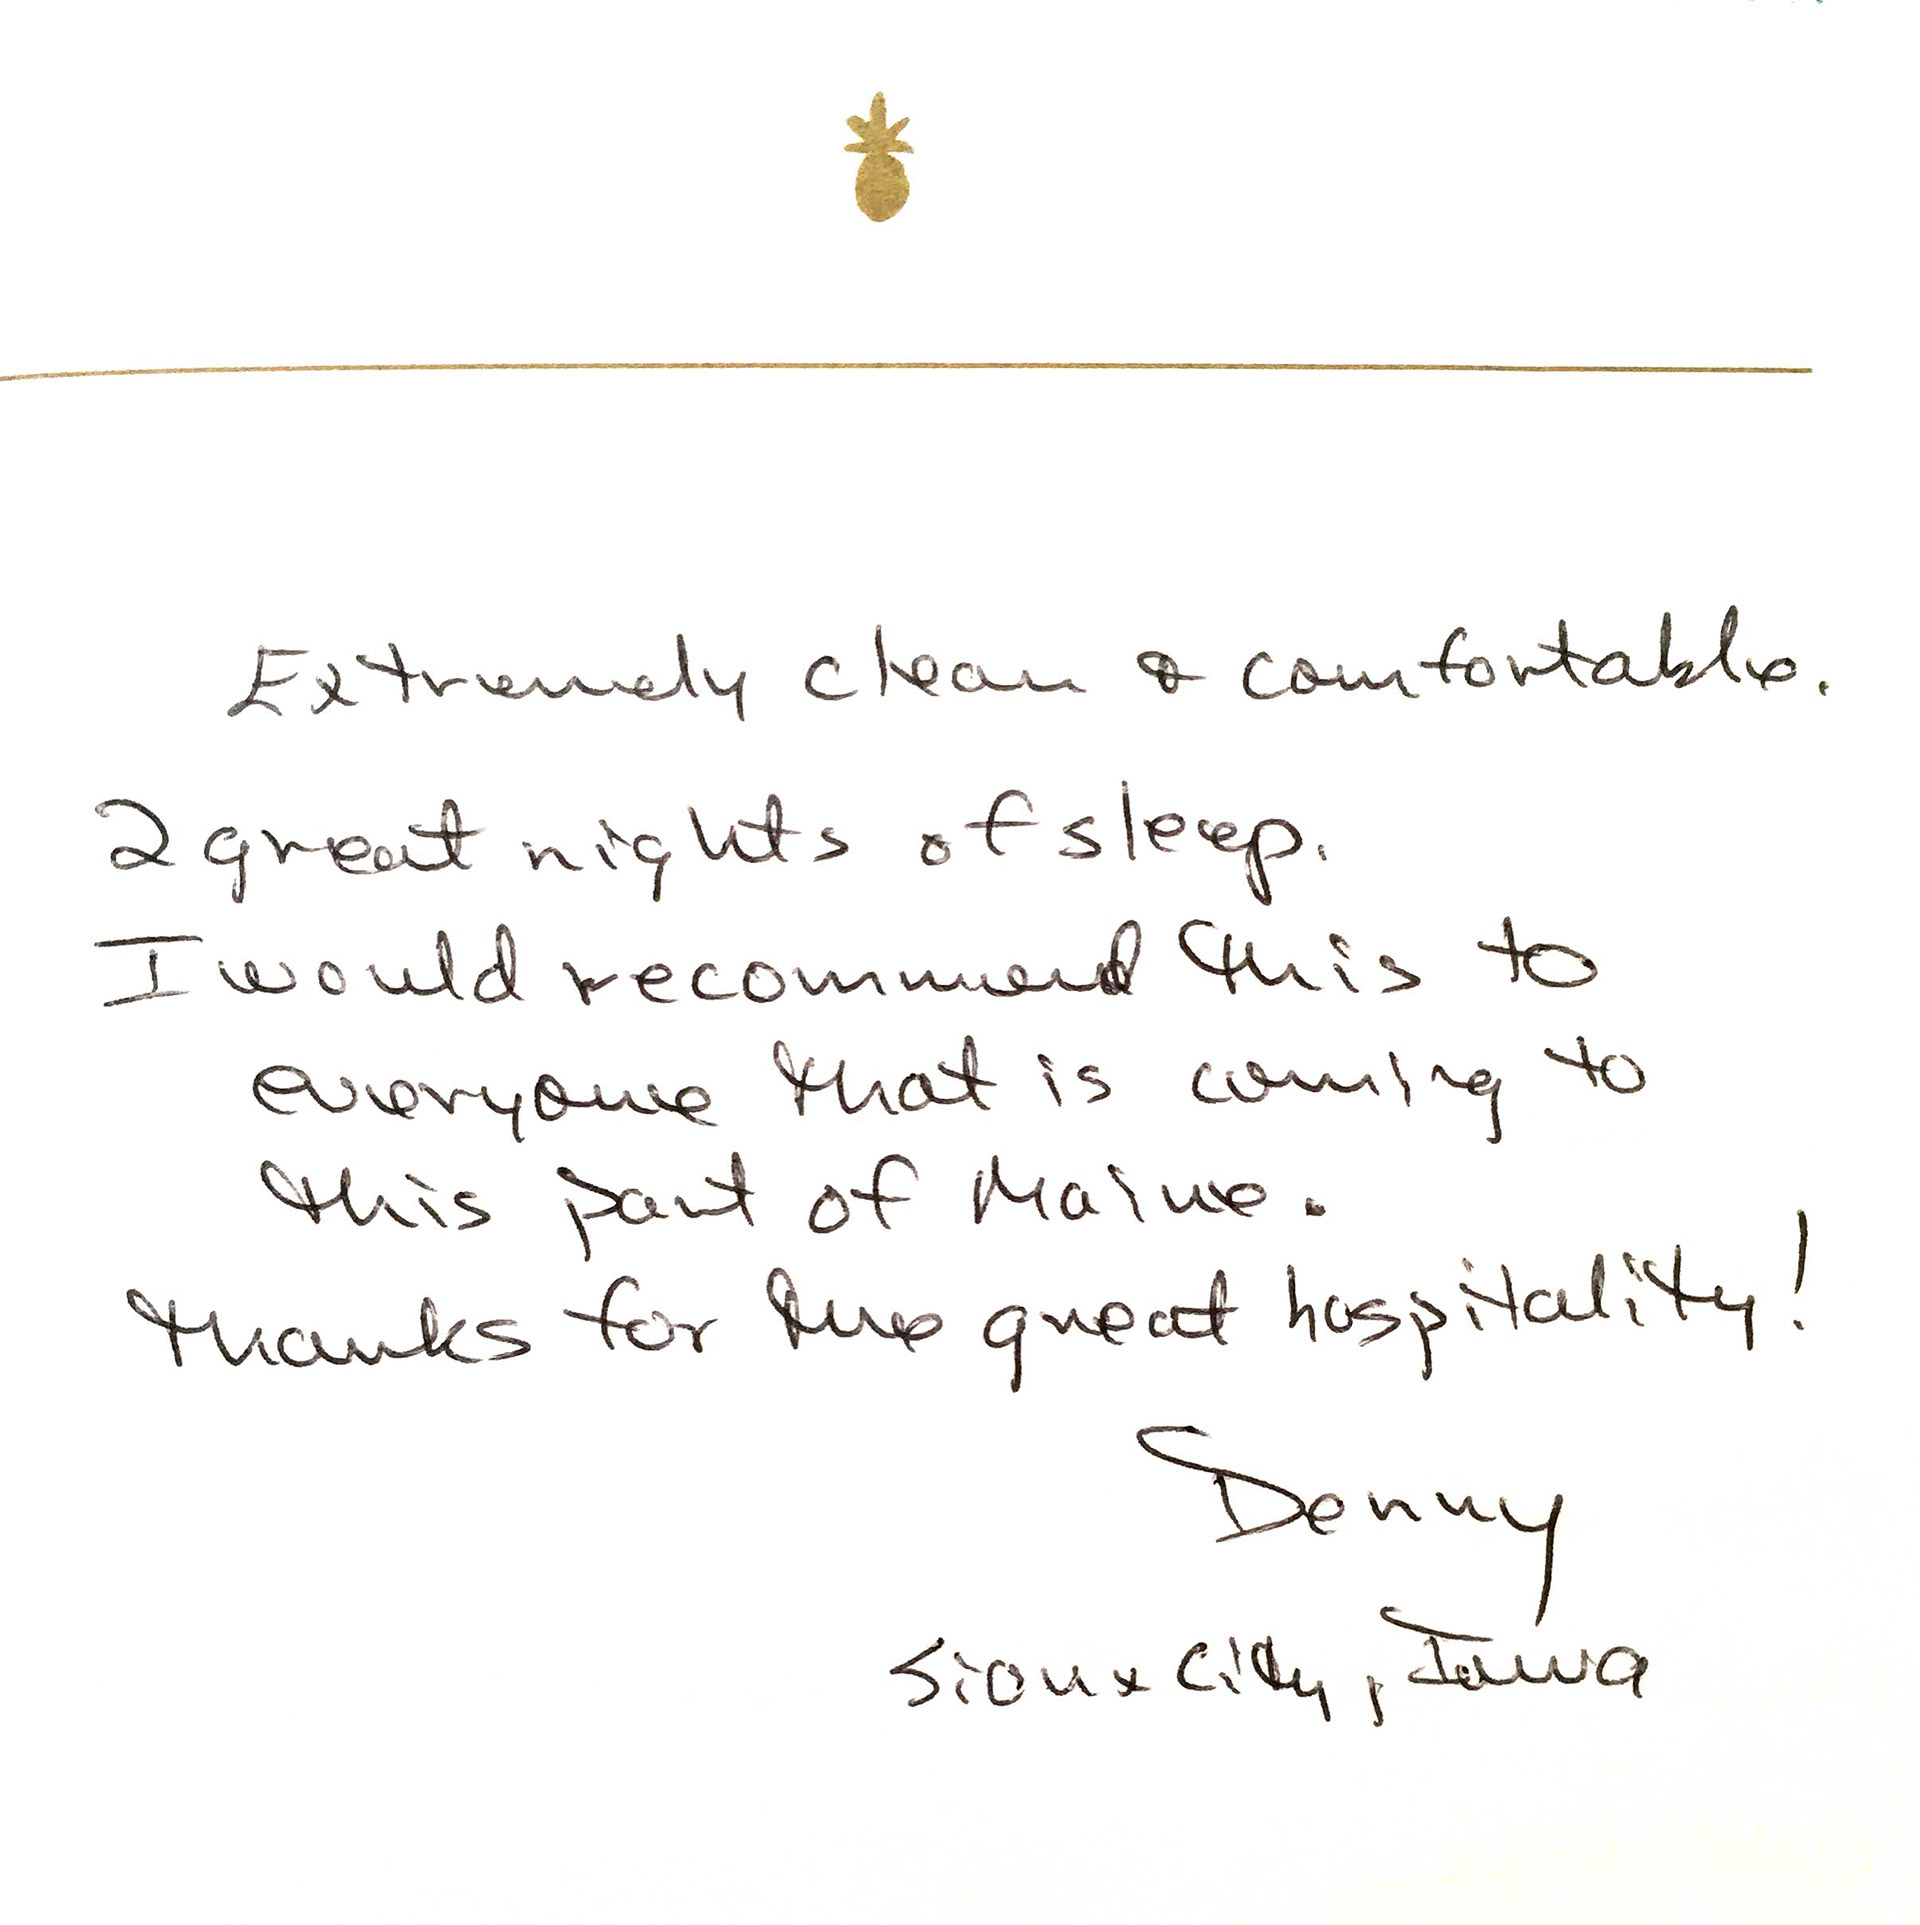 Extremely clean & comfortable.
2 great nights of sleep.
I would recommend this to
everyone that is coming to
this part of Maine.
thanks for the great hospitality!
Denny
Sioux City, Iowa